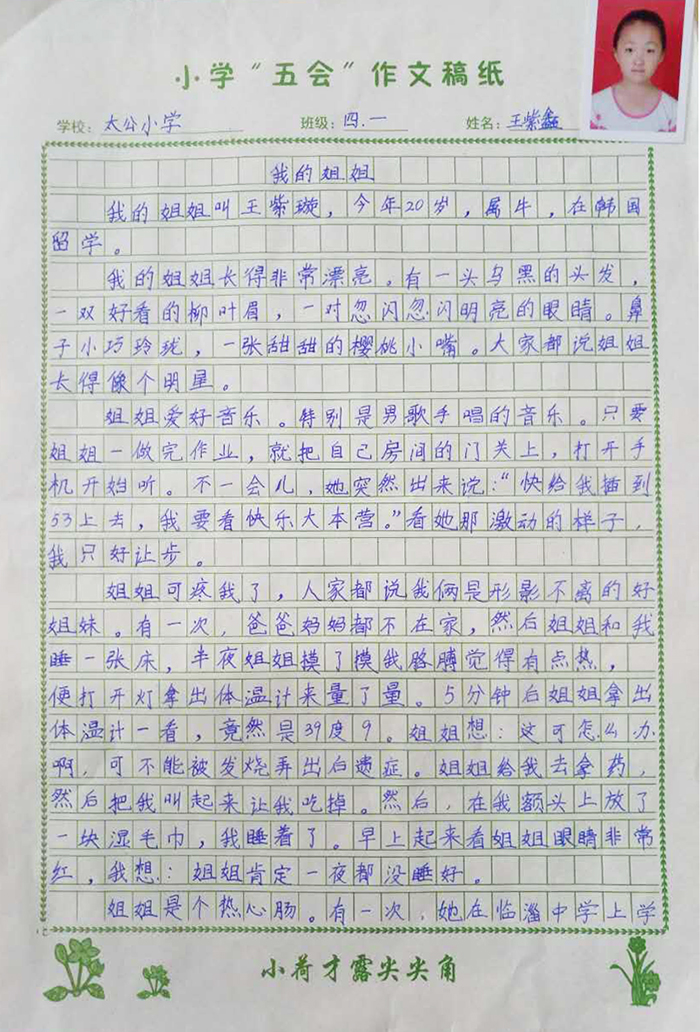 小学“五会”作文稿纸
学校：太公小学 班级：四.一 姓名：王紫鑫
我的姐姐
我的姐姐叫王紫璇，今年20岁，属牛，在韩国
留学。
我的姐姐长得非常漂亮。有一头乌黑的头发，
一双好看的柳叶眉，一对忽闪忽闪明亮的眼睛。鼻
子小巧玲珑，一张甜甜的樱桃小嘴。大家都说姐姐
长得像个明星。
姐姐爱好音乐。特别是男歌手唱的音乐。只要
姐姐一做完作业，就把自己房间的门关上，打开手
机开始听。不一会儿，她突然出来说：“快给我插到
53上去，我要看快乐大本营。”看她那激动的样子，
我只好让步。
姐姐可疼我了，人家都说我俩是形影不离的好
姐妹。有一次，爸爸妈妈都不在家，然后姐姐和我
睡一张床，半夜姐姐摸了摸我胳膊觉得有点热，
便打开灯拿出体温计来量了量。5分钟后姐姐拿出
体温计一看，竟然是39度9。姐姐想：这可怎么办
啊，可不能被发烧弄出后遗症。姐姐给我去拿药，
然后把我叫起来让我吃掉。然后，在我额头上放了
一块湿毛巾，我睡着了。早上起来看姐姐眼睛非常
红，我想：姐姐肯定一夜都没睡好。
姐姐是个热心肠。有一次，她在临淄中学上学
小荷才露尖尖角